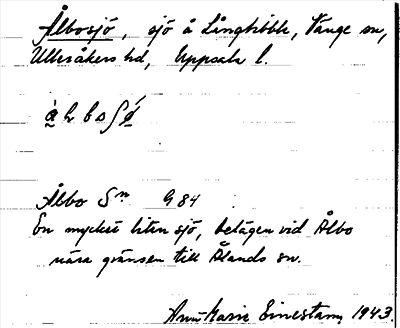 Ålbosjö, sjö å Långhöble, Vänge sn,
Ulleråkers hd, Uppsala l.
Ålbo Sn G 84
En mycket liten sjö, belägen vid Ålbo
nära gränsen till Ålands sn.
Ann-Marie Einestam, 1943.